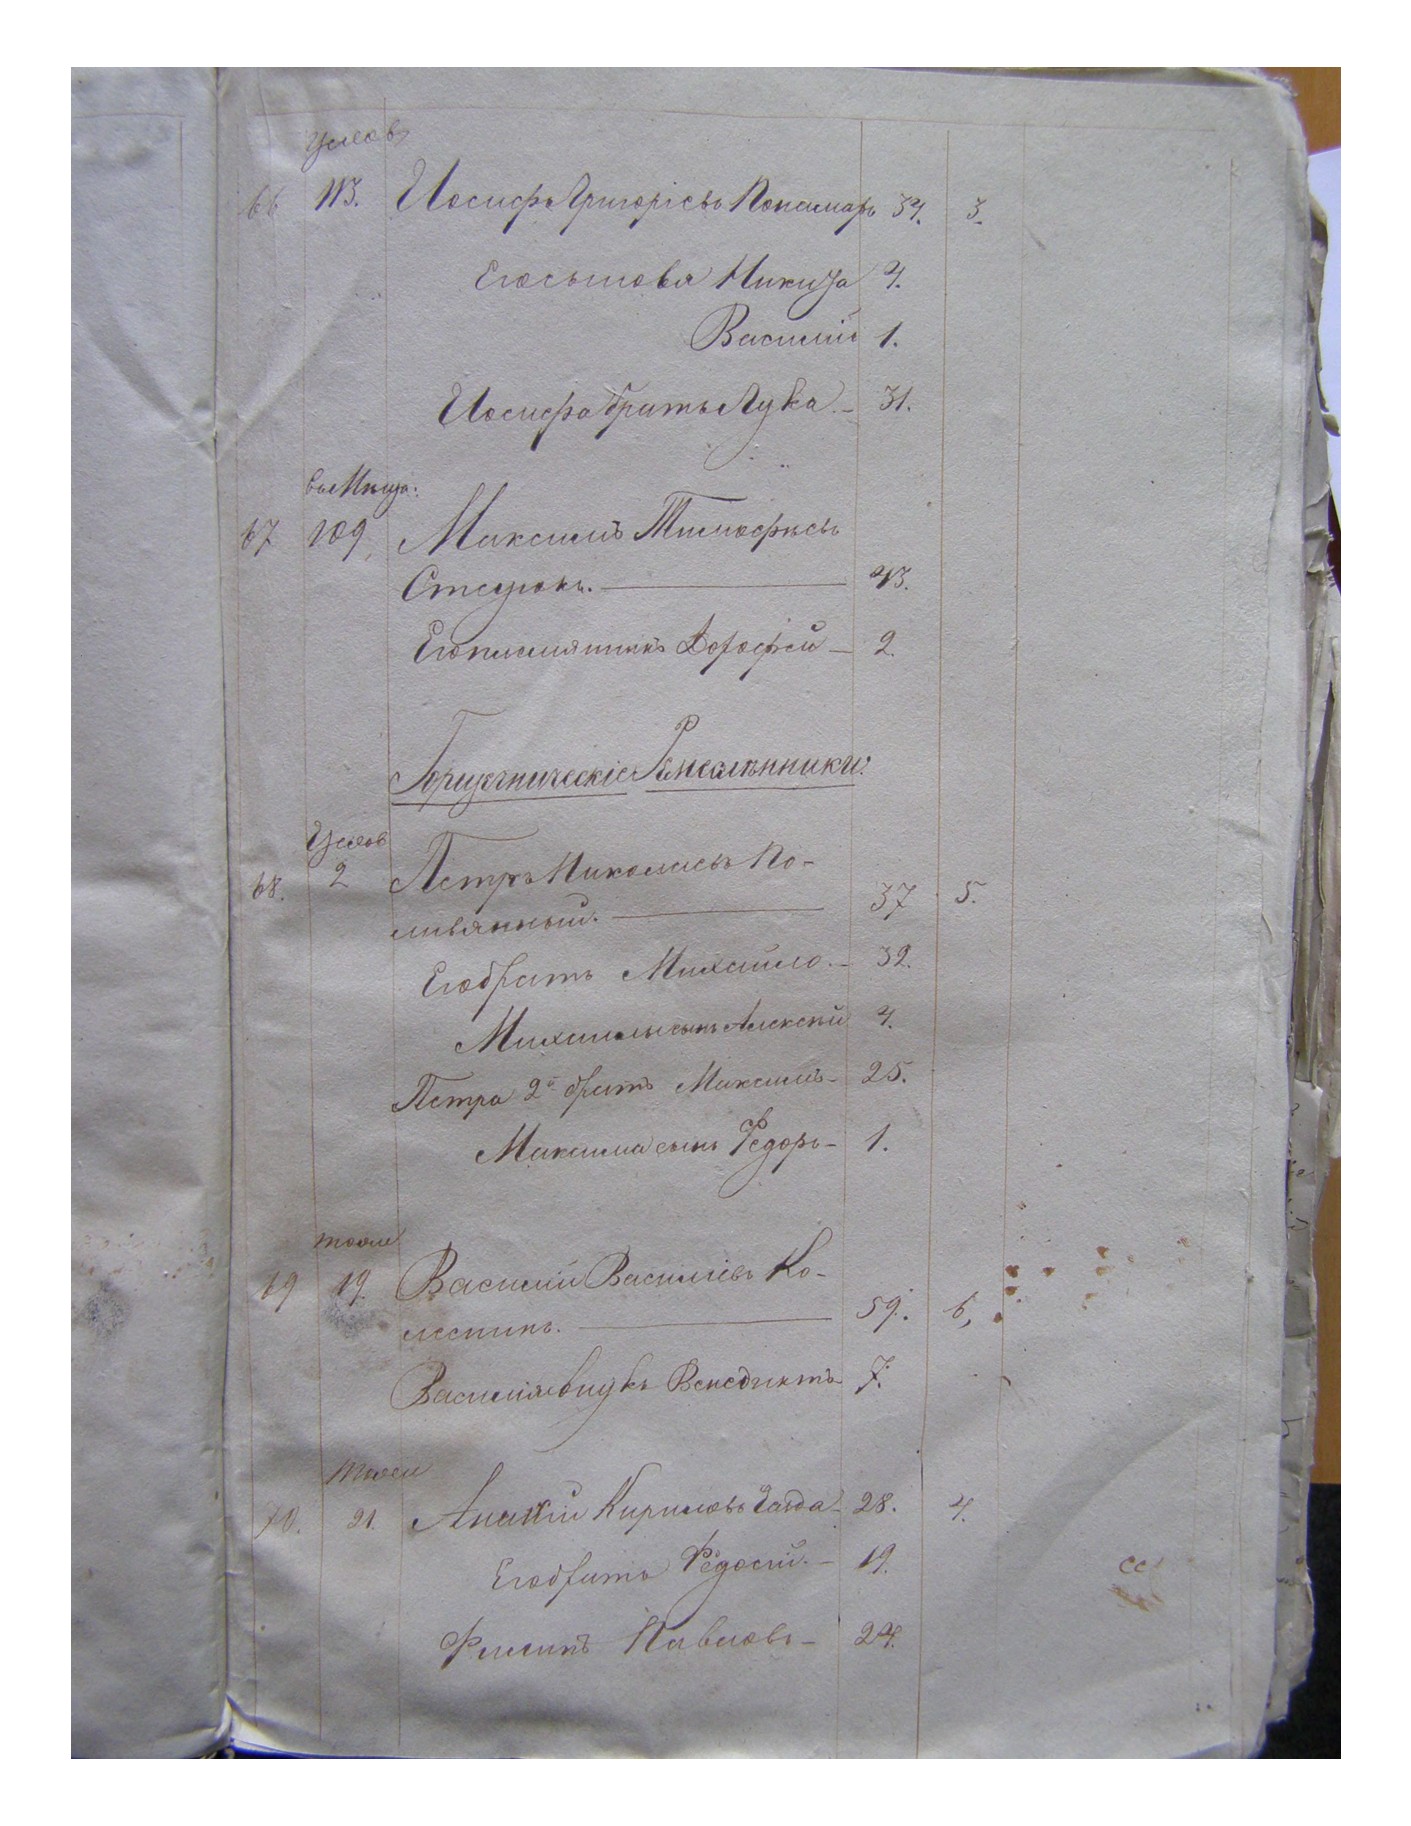 66 113. Іосифъ Григоріевъ Пономарь 34. 3.
Его сыновья Никита 4.
Василій 1.
Іосифа братъ Лука. 31.
67 109 Максимъ Тимофѣевъ
43.
Его племянникъ Дорофей 2.
Ремесленники.
68. 2 Петръ Николаевъ По-
ливянный. 37 5.
Его братъ Михайло. 32.
Михаилы сынъ Алексѣй 4.
Петра 2й братъ Максимъ 25.
Максима сынъ Ѳедоръ 1.
тоже
69 19. Василій Василіевъ Ко-
59. 6,
Василія внукъ Венедиктъ 7.
тоже
70. 21. Кириловъ 28. 4.
Его братъ Ѳедосій. 19.
Филипъ Павловъ 24.